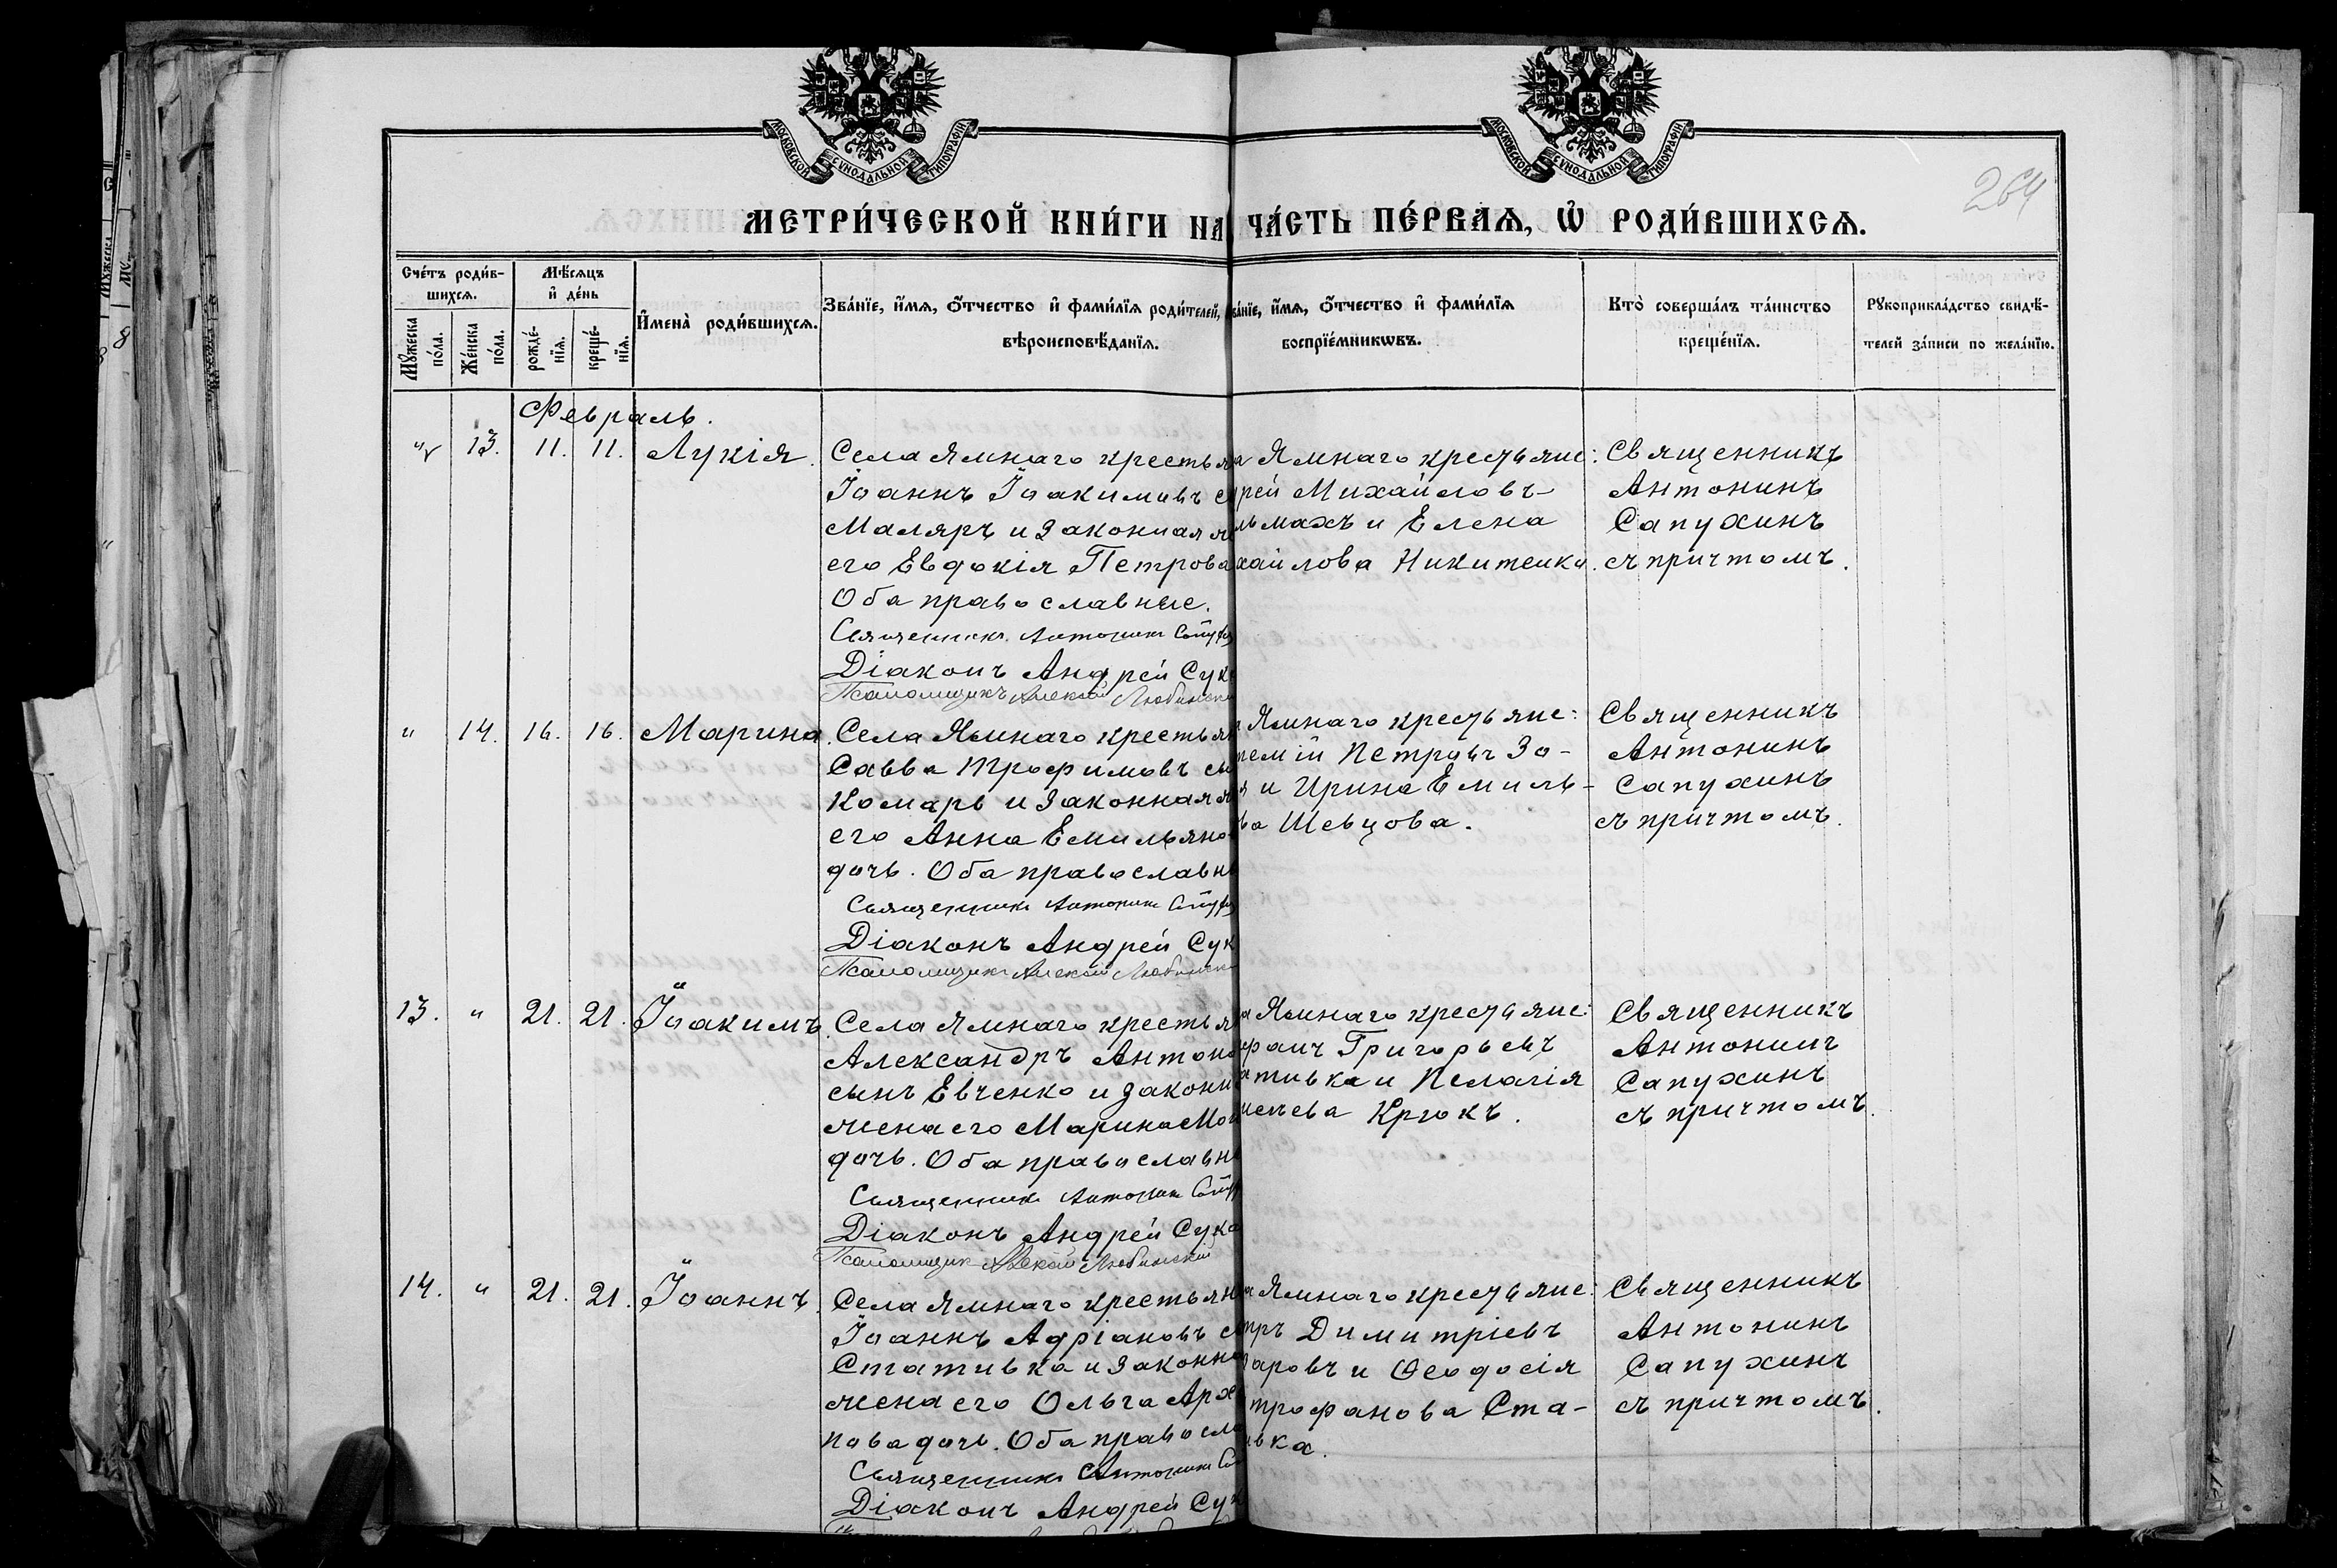 МОСКОВСКОЙ СѴНОДАЛЬНОЙ ТИПОГРАФІИ
МОСКОВСКОЙ СѴНОДАЛЬНОЙ ТИПОГРАФІИ
264
МЕТРИ́ЧЕСКОЙ КНИ́ГИ НА ЧА́СТЬ ПЕ́РВАѦ, Ѡ҆ РОДИ́ВШИХСѦ.
Сче́тъ роди́в-
шихсѧ.
Мѣ́сѧцъ
и҆ де́нь
Мꙋ́жеска
по́ла.
Же́нска
по́ла.
рожде́-
нїѧ.
креще́-
нїѧ.
И҆мена̀ роди́вшихсѧ.
Зва́нїе, и҆́мѧ, ѻ҆́тчество и҆ фами́лїѧ роди́телей,
вѣроисповѣ́данїѧ.
ва́нїе, и҆́мѧ, ѻ҆́тчество и҆ фами́лїѧ
воспрїе́мникωвъ.
Кто̀ соверша́лъ та́инство
креще́нїѧ.
Рꙋкоприкла́дство свидѣ́-
телей за́писи по жела́нїю.
Февраль.
" 13. 11. 11. Лукія.
Села Ямнаго крестья
Іоаннъ Іоакимовъ с
Маляръ и законная ж
его Евдокія Петрова
Оба православные.
Священникъ Антонинъ
Діаконъ Андрей Сук
Псаломщикъ Алексій Любинск
а Ямнаго крестьяне:
рей Михайловъ
льмахъ и Елена
хайлова Никитенко.
Священникъ
Антонинъ
Сапухинъ
съ причтомъ.
" 14. 16. 16. Марина.
Села Ямнаго крестьян
Савва Трофимовъ сы
Комаръ и законная ж
его Анна Емильяно
дочь. Оба православн
Священникъ Антонинъ
Діаконъ Андрей Сук
Псаломщикъ Алексій Любинск
Ямнаго крестьяне:
темій Петровъ Зо-
и Ирина Емиль-
ва Шевцова.
Священникъ
Антонинъ
Сапухинъ
съ причтомъ.
13. " 21. 21. Іоакимъ.
Села Ямнаго крестья
Александръ Антоно
сынъ Евченко и законн
жена его Марина Мои
дочь. Оба православн
Священникъ Антонинъ
Діаконъ Андрей Сука
Псаломщикъ Алексій Любинскій
а Ямнаго крестьяне:
фанъ Григорьевъ
ативка и Пелагія
исеева Крюкъ.
Священникъ
Антонинъ
Сапухинъ
съ причтомъ.
14. " 21. 21. Іоаннъ.
Села Ямнаго крестьян
Іоаннъ Адріановъ с
Стативка и законна
жена его Ольга Архи
пова дочь. Оба правосла
Священникъ Антонинъ
Діаконъ Андрей Сук
а Ямнаго крестьяне:
тръ Димитріевъ
аровъ и Ѳеодосія
трофанова Ста-
ивка.
Священникъ
Антонинъ
Сапухинъ
съ причтомъ.